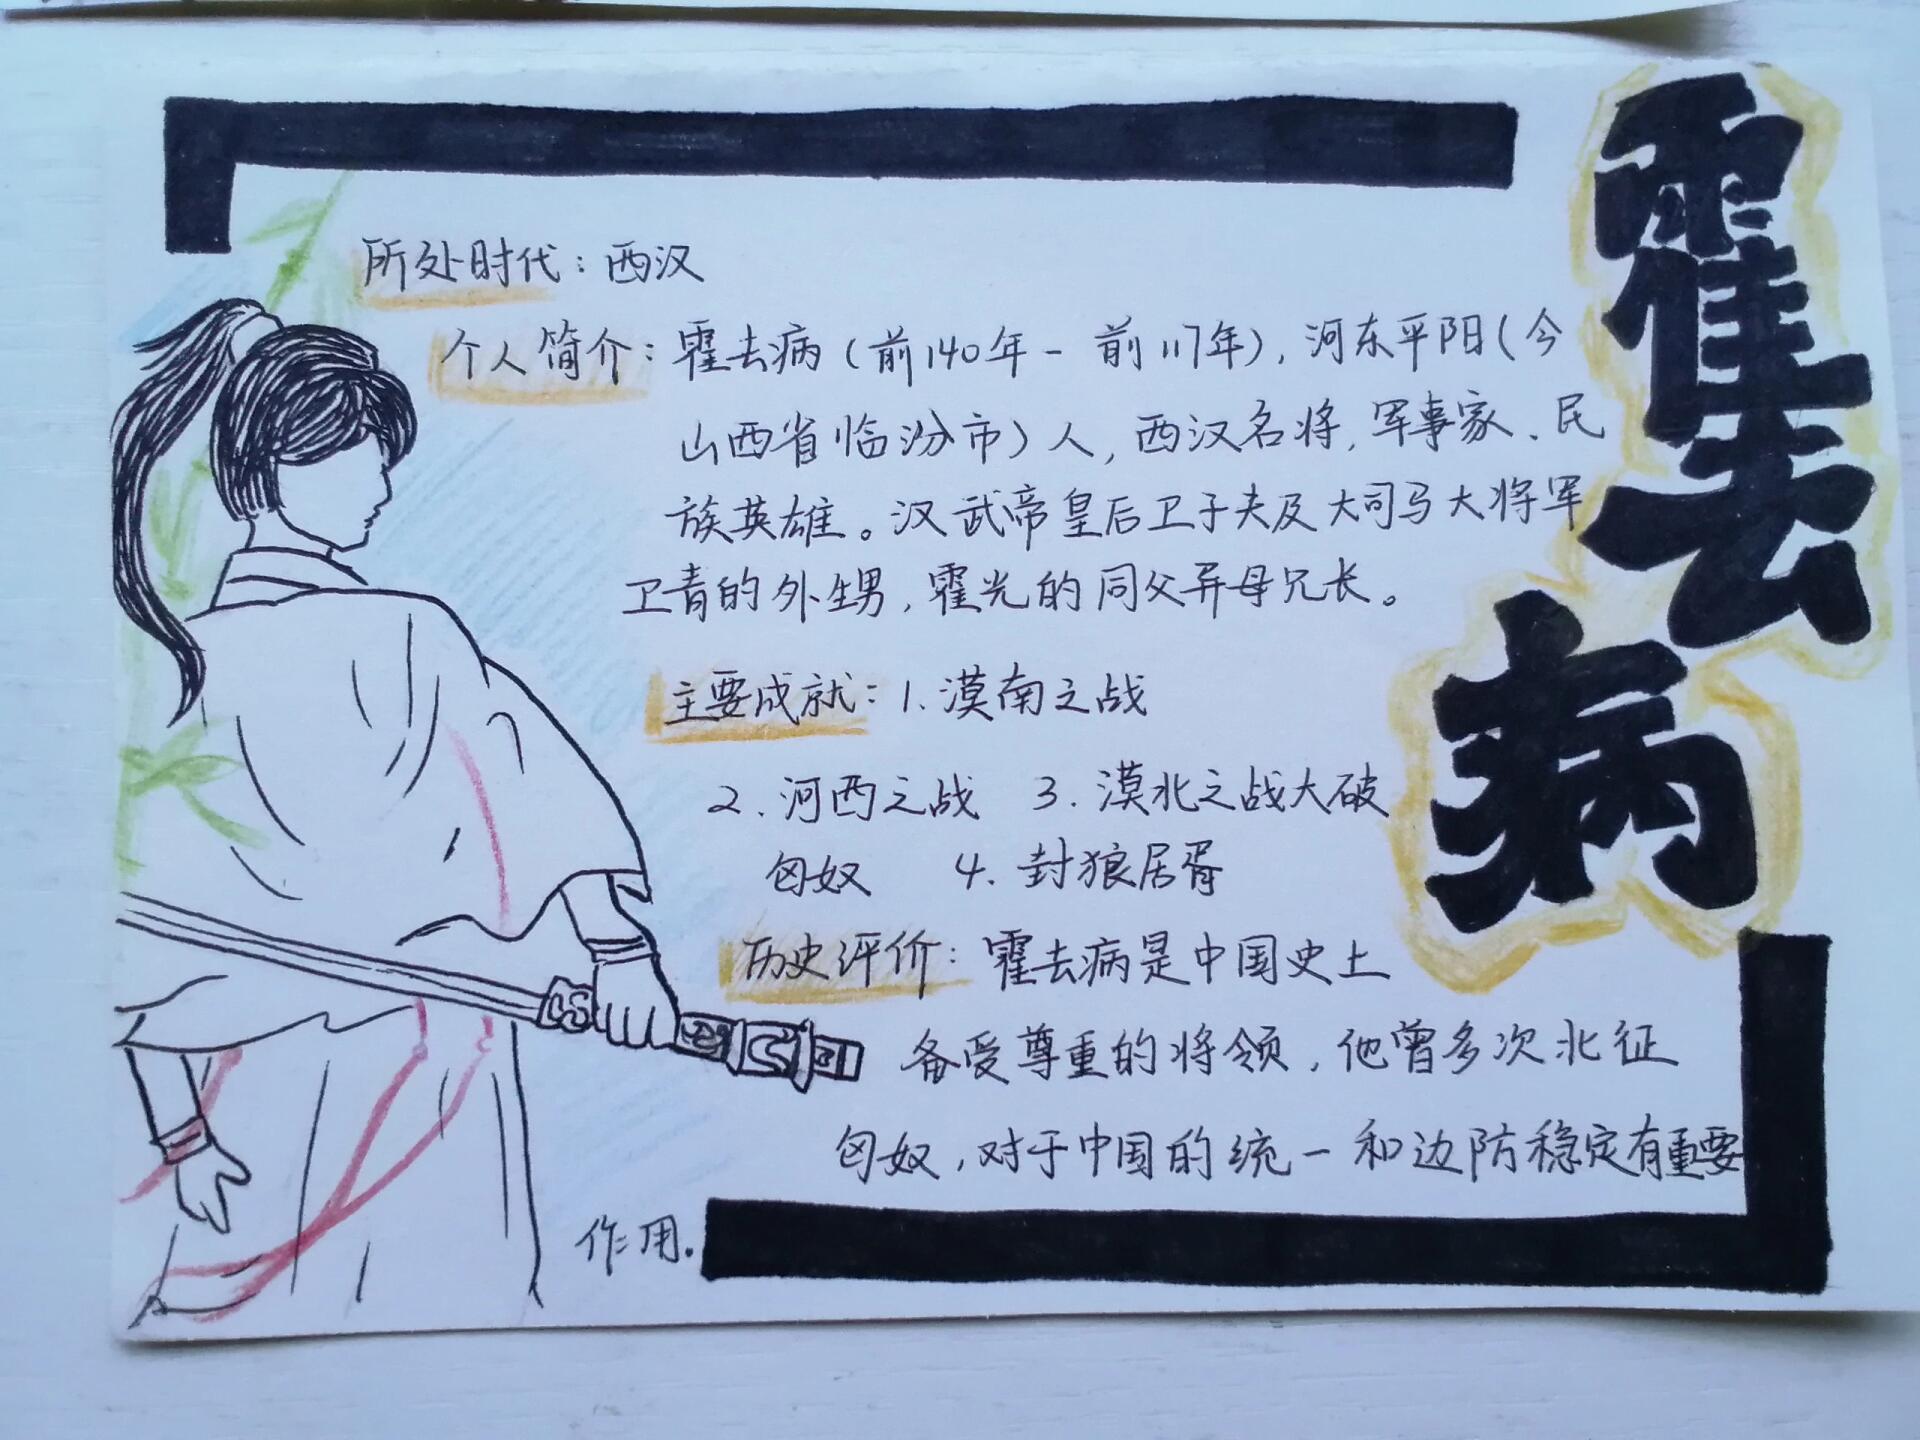 霍去病
所处时代：西汉
个人简介：霍去病（前140年-前117年），河东平阳（今
山西省临汾市）人，西汉名将，军事家、民
族英雄。汉武帝皇后卫子夫及大司马大将军
卫青的外甥，霍光的同父异母兄长。
主要成就：1.漠南之战
2.河西之战 3.漠北之战大破
匈奴 4.封狼居胥
历史评价：霍去病是中国史上
备受尊重的将领，他曾多次北征
匈奴，对于中国的统一和边防稳定有重要
作用.